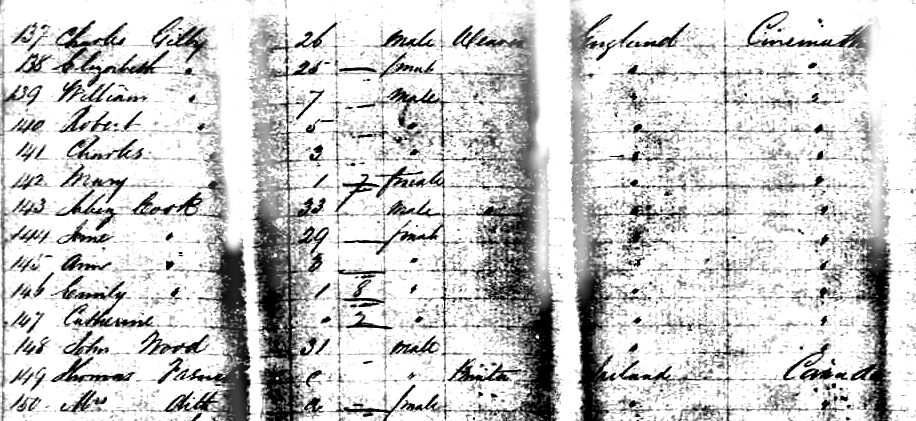 137 Charles Gilby 26 male Weaver England Cincinatti
138 Elizabeth " 25 — female " "
139 William " 7 — male " "
140 Robert " 5 — " " "
141 Charles 3 " " "
142 Mary " 1 7 female " "
143 Cook 33 male " " "
144 Jane " 29 — female " "
145 Ann " 3 — " " "
146 Emily " 1 8 " " "
147 Catherine " 2 " " "
148 John Wood 31 male " "
149 Thomas " Ireland Canada
150 Mrs Ditto — female " "